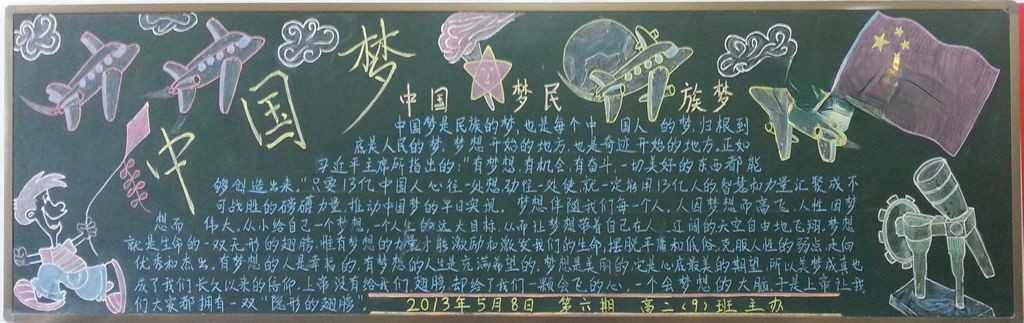 中国梦
中国梦民族梦
中国梦是民族的梦,也是每个中国人的梦.归根到
底是人民的梦.梦想开始的地方.也是奇迹开始的地方.正如
习近平主席所指出的:"有梦想,有机会,有奋斗,一切美好的东西都能
够创造出来."只要13亿中国人心往一处想劲往一处使,就一定能够用13亿人的智慧和力量汇聚成不
可战胜的磅礴力量推动中国梦的早日实现.梦想伴随我们每一个人,人因梦想而高飞,人性因梦
想而伟大.从小给自己一个梦想,一个人生的远大目标.从而让梦想带着自己在人生辽阔的天空自由地飞翔.梦想
就是生命的一双无形的翅膀,惟有梦想的力量才能激励和激发我们的生命,摆脱平庸和低俗.克服人性的弱点.走向
优秀和杰出.有梦想的人是幸福的,有梦想的人生是充满希望的,梦想是美丽的,它是心底最美的期望,所以美梦成真也
成了我们长久以来的信仰.上帝没有给我们翅膀,却给了我们一颗会飞的心,一个会梦想的大脑,于是上帝让我
们大家都拥有一双"隐形的翅膀".
2013年5月8日 第六期 高二(9)班主办